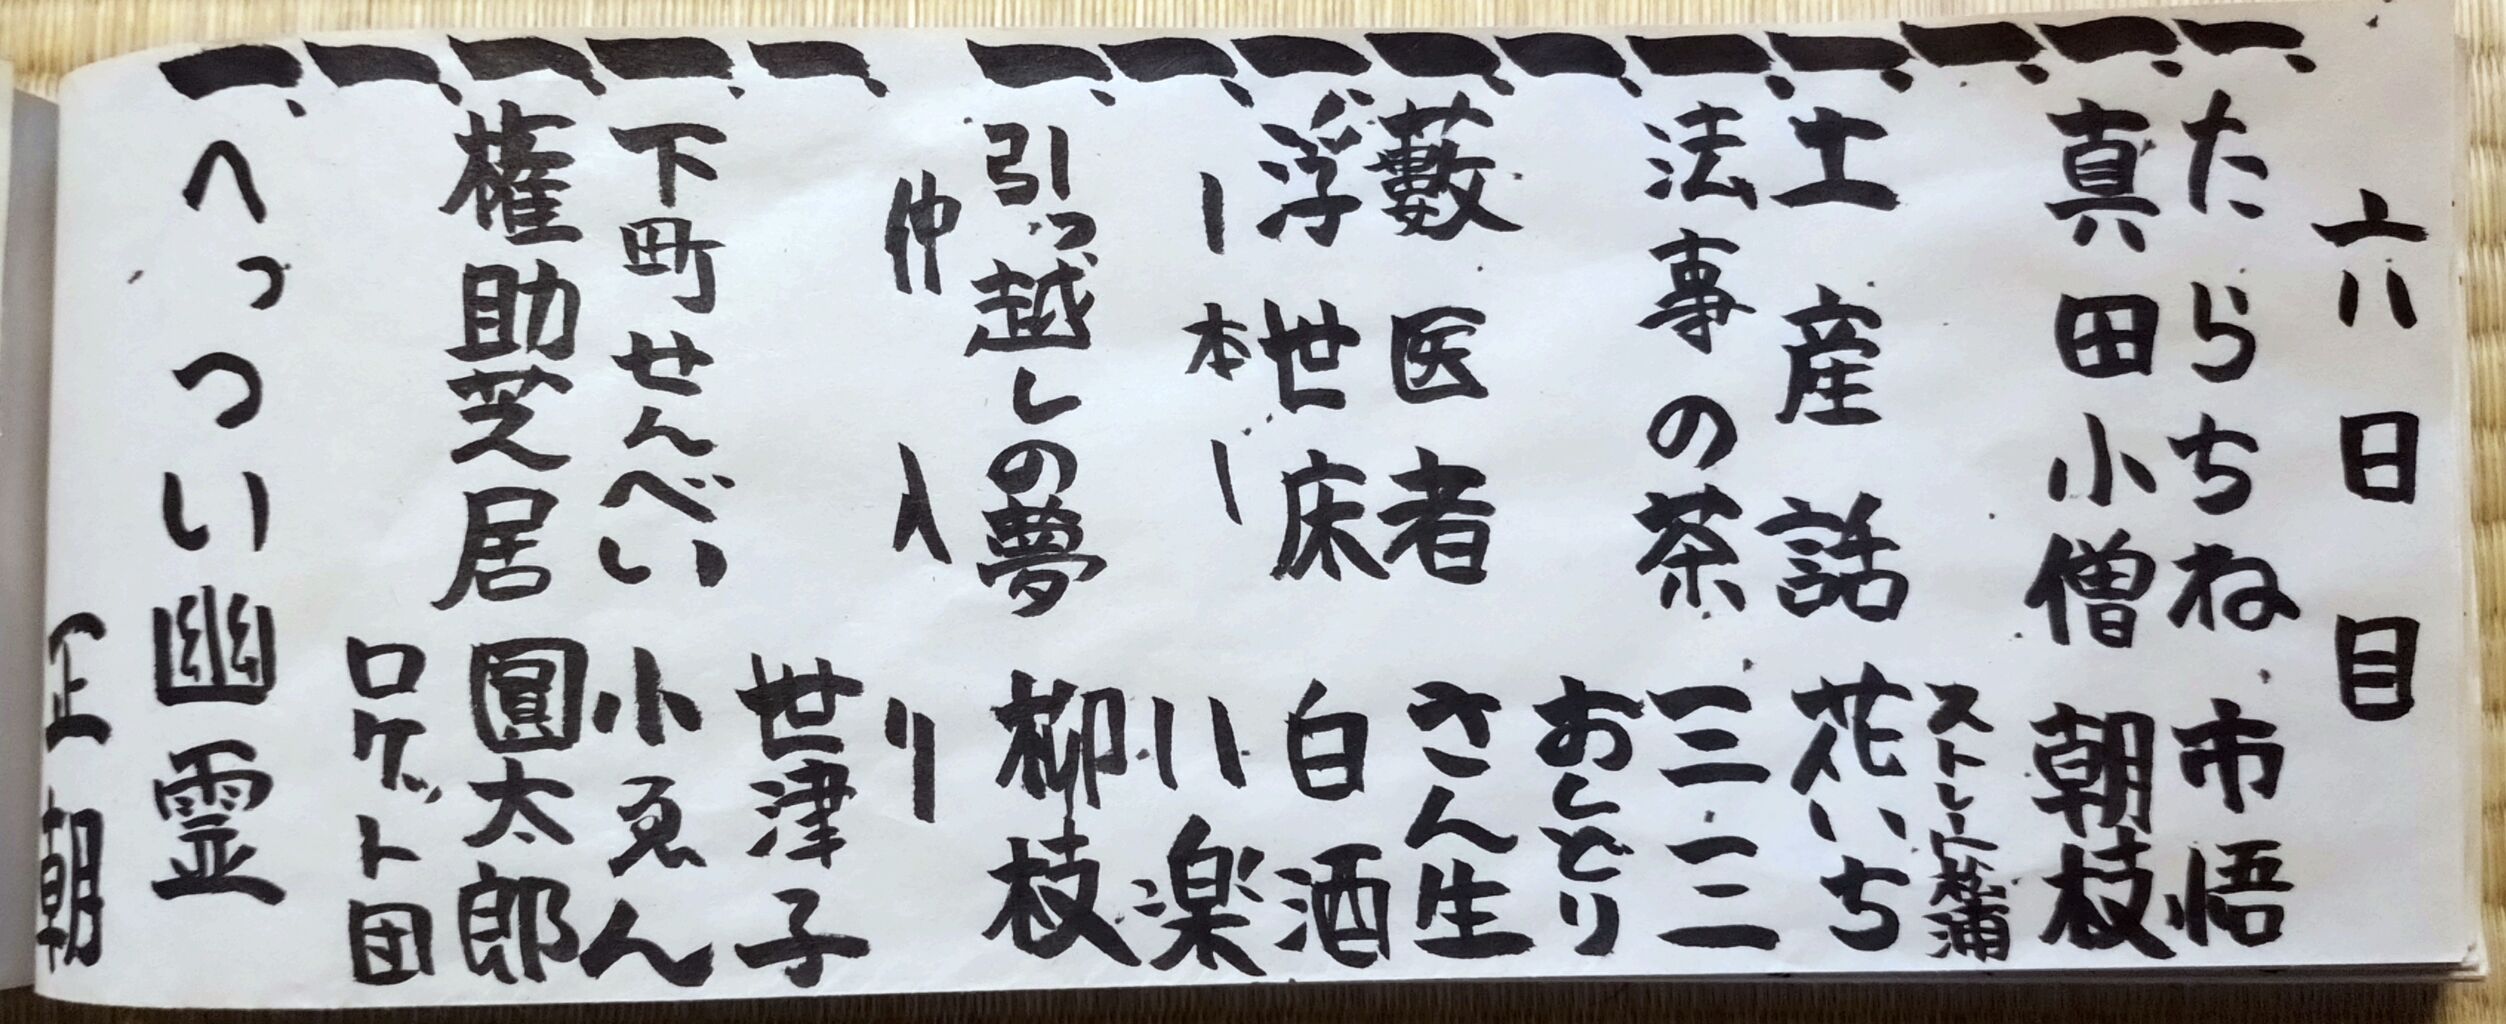 六日目
一、たらちね 市悟
一、真田小僧 朝枝
一、ストレート松浦
一、土産話 花いち
一、法事の茶 三三
一、おしどり
一、藪医者 さん生
一、浮世床 白酒
一、ー本ー 八楽
一、引っ越しの夢 柳枝
仲入り
一、世津子
一、下町せんべい 小ゑん
一、権助芝居 圓太郎
一、ロケット団
一、へっつい幽霊
正朝